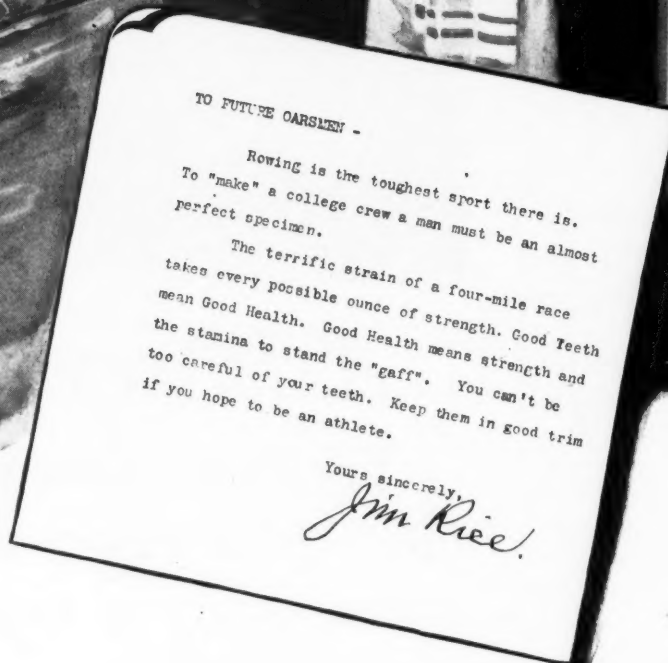 TO FUTURE OARSMEN -
Rowing is the toughest sport there is.
To "make" a college crew a man must be an almost
perfect specimen.
The terrific strain of a four-mile race
takes every possible ounce of strength. Good Teeth
mean Good Health. Good Health means strength and
the stamina to stand the "gaff". You can't be
too careful of your teeth. Keep them in good trim
if you hope to be an athlete.
Yours sincerely,
Jim Rice.